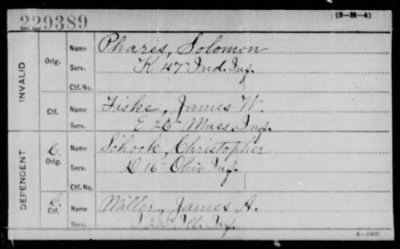 229389
(3-H-4)
INVALID
Orig. Name Phares, Solomon
Serv. K 47 Ind. Inf.
Ctf. No.
Ctf. Name Fiske, James W.
Serv. E 25 Mass. Inf.
DEPENDENT
C. Orig. Name Schock, Christopher
Serv. D 16 Ohio Inf.
Ctf. No.
C. Ctf. Name Miller, James A.
Serv. Ill. Inf.